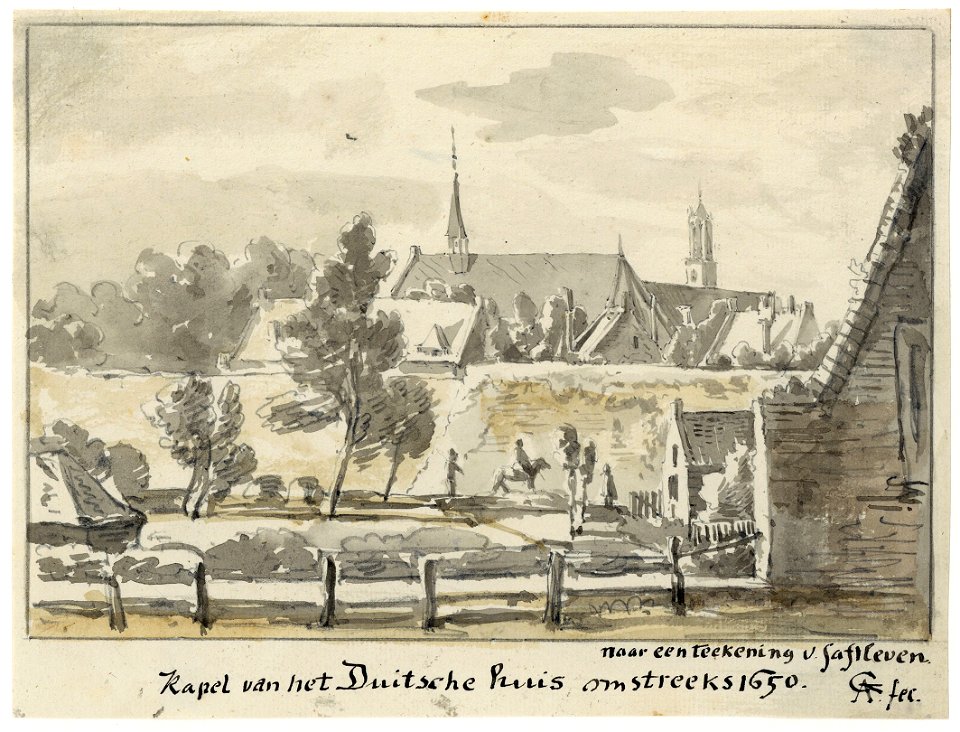 naar een teekening v. Saftleven.
Kapel van het Duitsche huis omstreeks 1650.
fec.